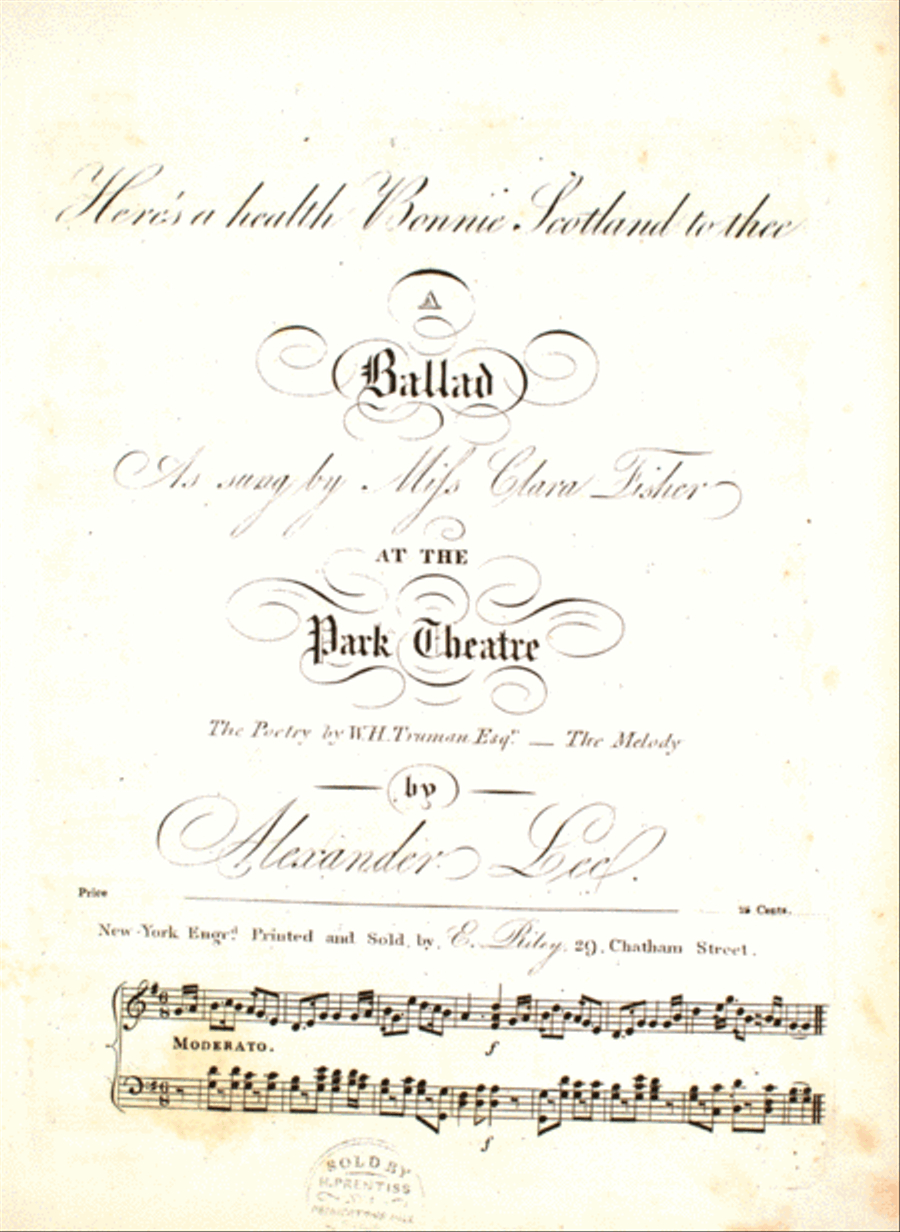 Here's a health Bonnie Scotland to thee
A
Ballad
As sung by Miſs Clara Fisher
AT THE
Park Theatre
The Poetry by W.H. Truman Esqr. — The Melody
by
Alexander Lee.
Price 25 Cents.
New-York Engrd. Printed and Sold by, E. Riley, 29, Chatham Street.
MODERATO.
f
f
SOLD BY
H. PRENTISS